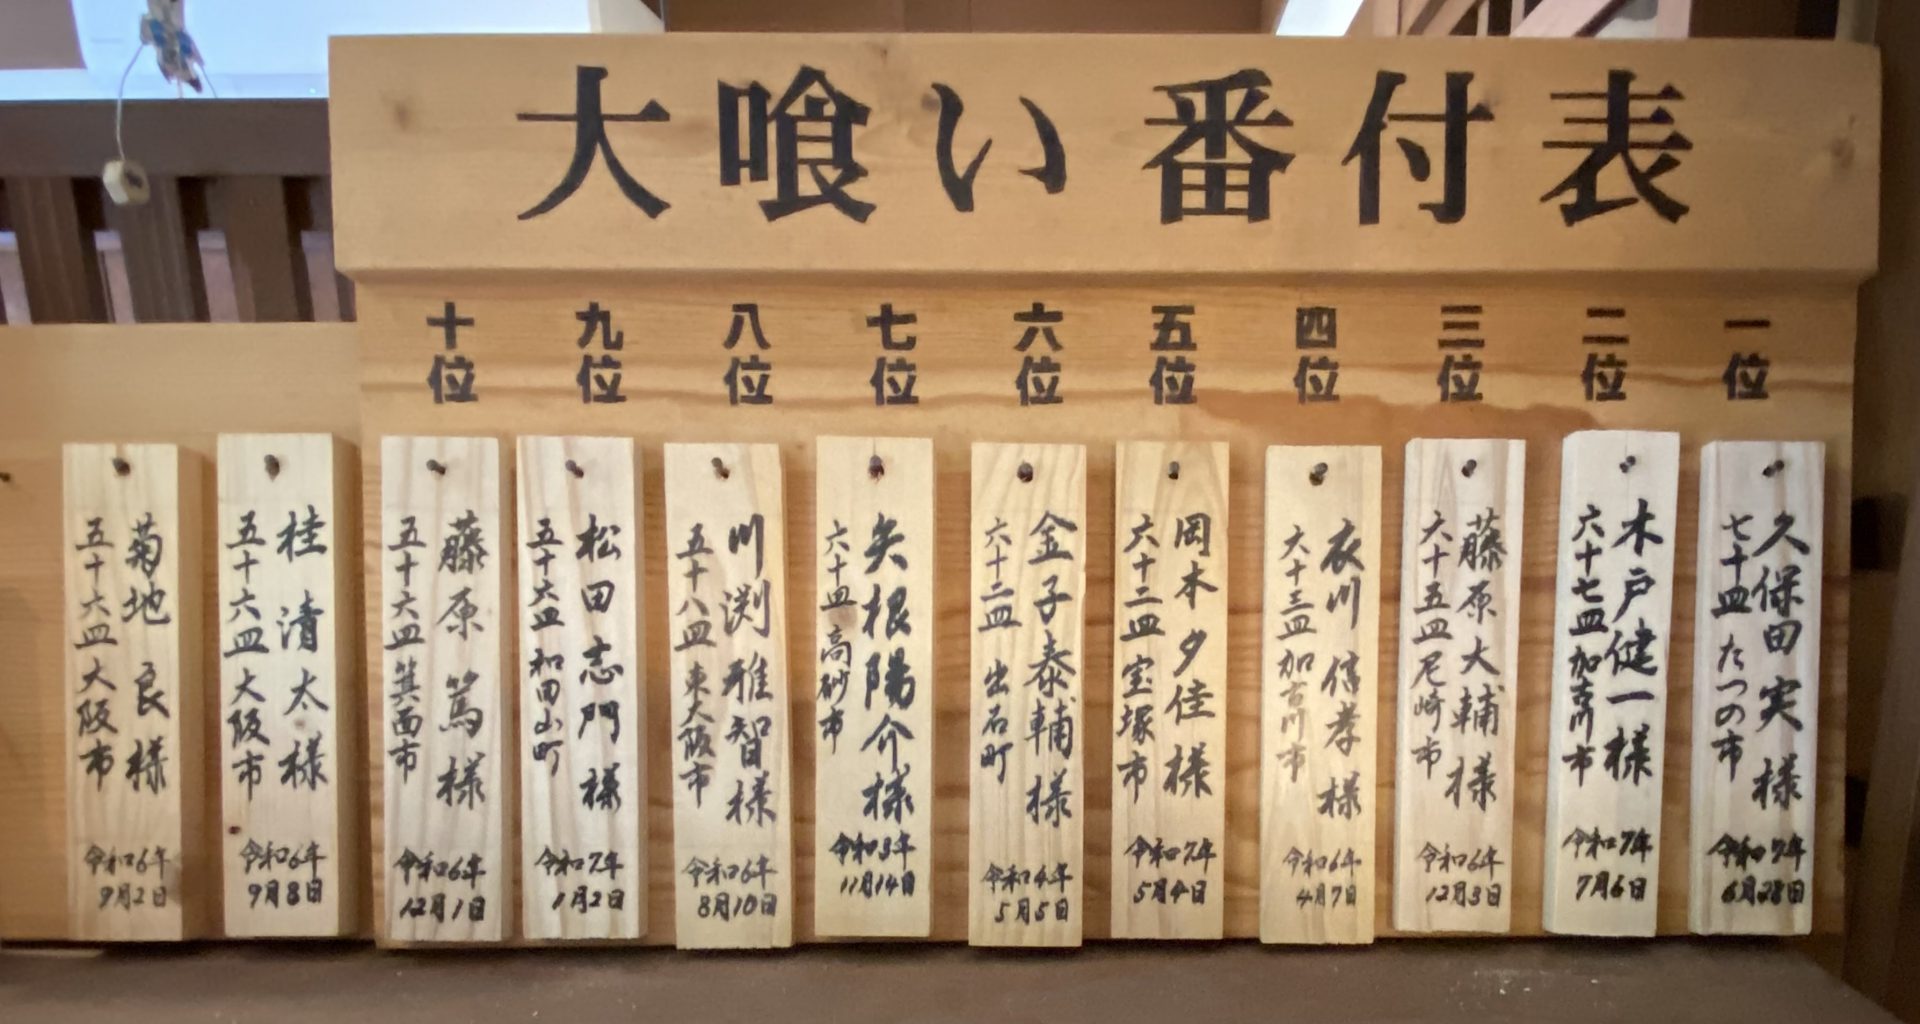 大喰い番付表
一位
二位
三位
四位
五位
六位
七位
八位
九位
十位
久保田 実 様
七十皿 たつの市
令和7年
6月28日
木戸健一様
六十七皿 加古川市
令和7年
7月6日
藤原大輔様
六十五皿 尼崎市
令和6年
12月3日
衣川 信孝 様
六十三皿 加古川市
令和6年
4月7日
岡本 夕佳 様
六十二皿 宝塚市
令和7年
5月4日
金子泰輔様
六十二皿 出石町
令和4年
5月5日
矢根陽介様
六十皿 高砂市
令和3年
11月14日
川渕雅智様
五十八皿 東大阪市
令和6年
8月10日
松田志門様
五十六皿 和田山町
令和7年
1月2日
藤原 篤 様
五十六皿 箕面市
令和6年
12月1日
桂 清太 様
五十六皿 大阪市
令和6年
9月8日
菊地 良 様
五十六皿 大阪市
令和6年
9月2日